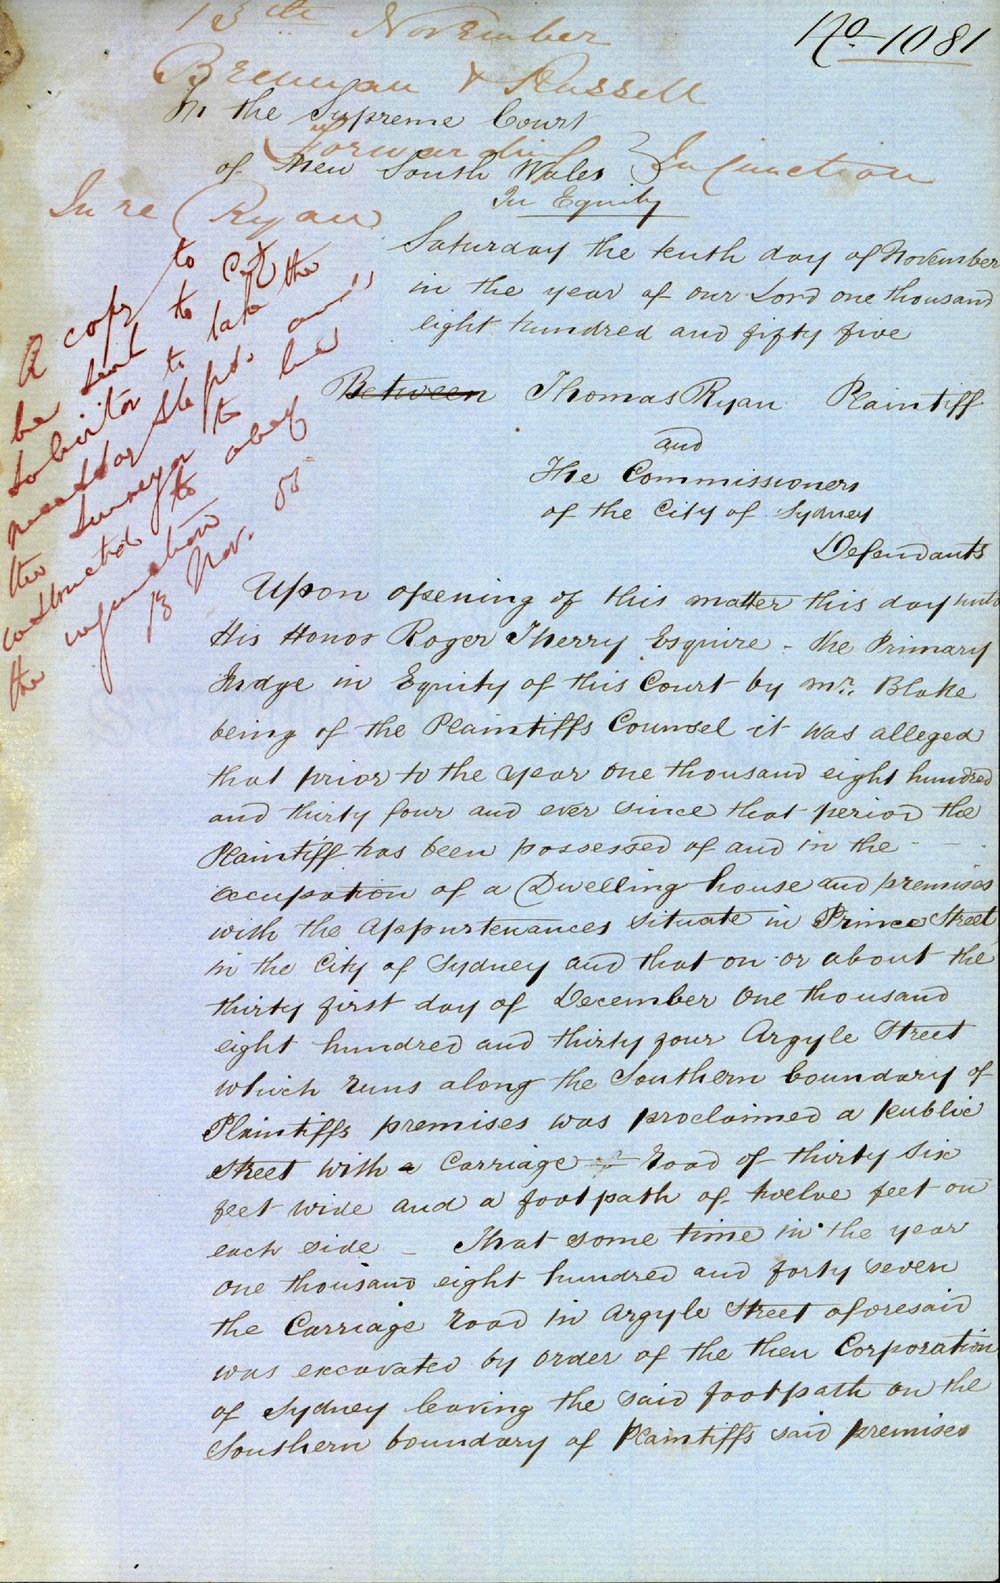 No. 1081
13th November
Brennan & Russell
Forwarding Injunction
In re Ryan
In the Supreme Court
of New South Wales
In Equity
A copy to
be sent to City
Solicitor to take the
necessary steps and
the Surveyor to be
instructed to obey
the injunction
13 Nov. 55
Saturday the tenth day of November
in the year of our Lord one thousand
eight hundred and fifty five
Between Thomas Ryan Plaintiff
and
The Commissioners
of the City of Sydney
Defendants
Upon opening of this matter this day unto
His Honor Roger Therry Esquire - the Primary
Judge in Equity of this Court by Mr. Blake
being of the Plaintiffs Counsel it was alleged
that prior to the year one thousand eight hundred
and thirty four and ever since that period the
Plaintiff has been possessed of and in the
occupation of a Dwelling house and premises
with the appurtenances situate in Prince Street
in the City of Sydney and that on or about the
thirty first day of December One thousand
eight hundred and thirty four Argyle Street
which runs along the Southern boundary of
Plaintiffs premises was proclaimed a public
Street with a Carriage road of thirty six
feet wide and a footpath of twelve feet on
each side - That some time in the year
one thousand eight hundred and forty seven
the Carriage road in Argyle Street aforesaid
was excavated by order of the then Corporation
of Sydney leaving the said footpath on the
Southern boundary of Plaintiffs said premises